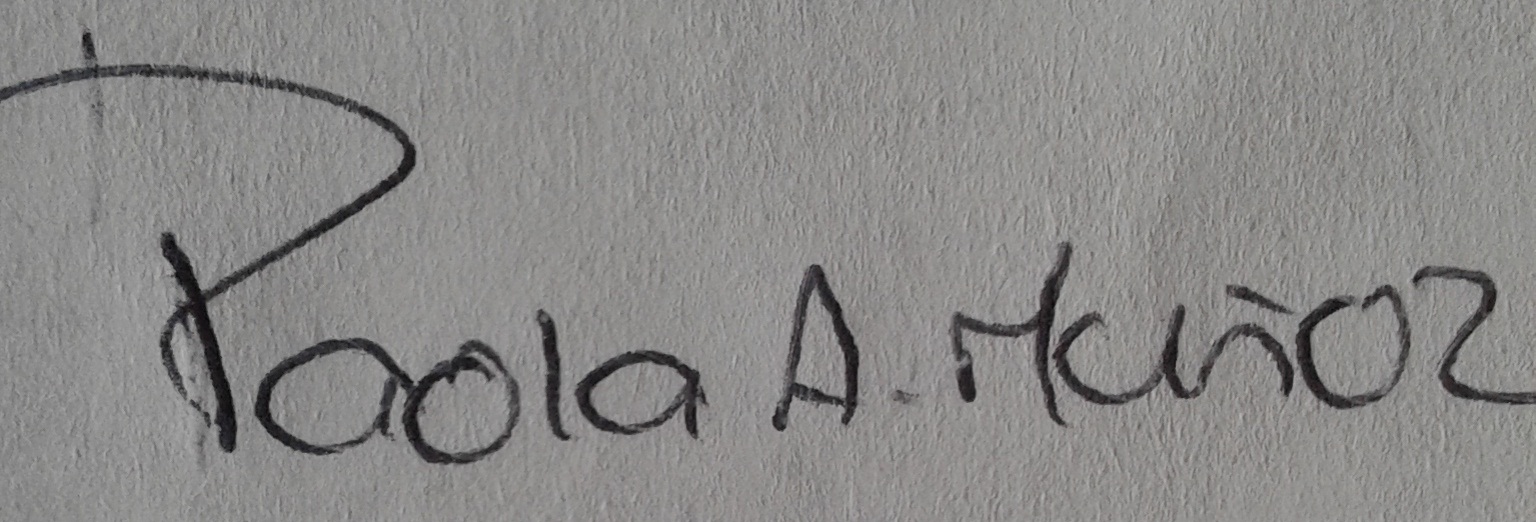 Paola A. Muñoz